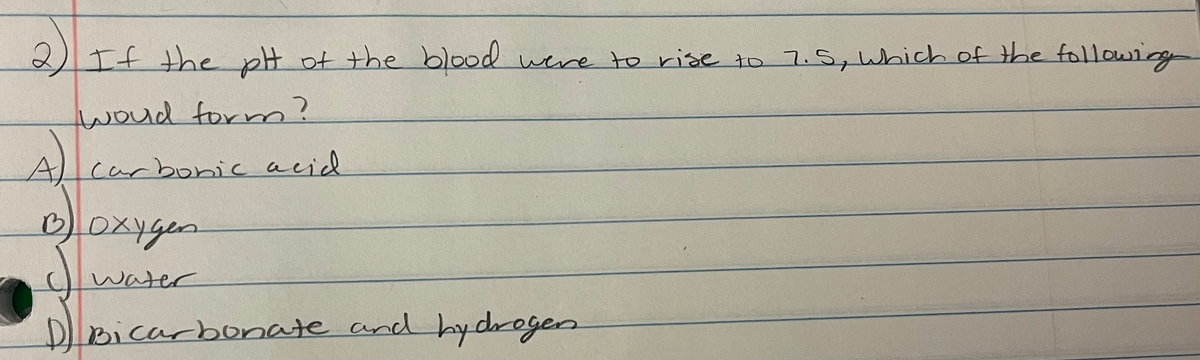 2) If the pH of the blood were to rise to 7.5, which of the following
woud form?
A) carbonic acid
B) oxygen
C) water
D) Bicarbonate and hydrogen